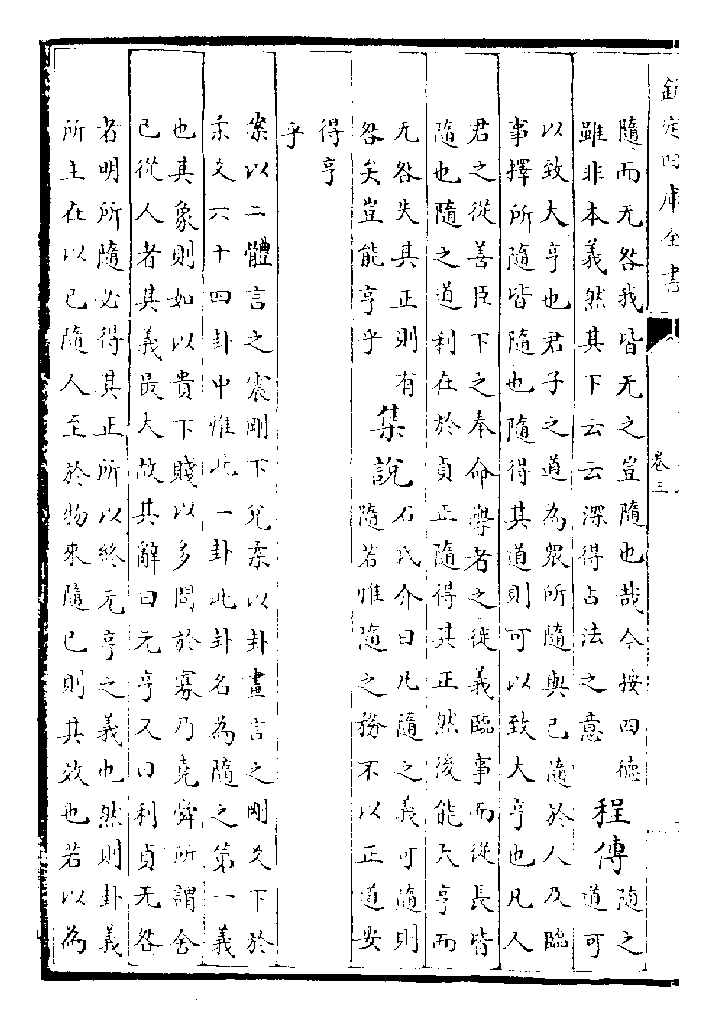 欽定四庫全書
卷三
隨而无咎我皆无之豈隨也哉今按四德
雖非本義然其下云云深得占法之意
程傳
隨之
道可
以致大亨也君子之道為眾所隨與己隨於人及臨
事擇所隨皆隨也隨得其道則可以致大亨也凡人
君之從善臣下之奉命學者之從義臨事而從長皆
隨也隨之道利在於貞正隨得其正然後能大亨而
无咎失其正則有
咎矣豈能亨乎
集說
石氏介曰凡隨之義可隨則
隨若惟隨之務不以正道安
得亨
乎
案以二體言之震剛下兌柔以卦畫言之剛爻下於
柔爻六十四卦中惟此一卦此卦名為隨之第一義
也其象則如以貴下賤以多問於寡乃堯舜所謂舍
己從人者其義最大故其辭曰元亨又曰利貞无咎
者明所隨必得其正所以終元亨之義也然則卦義
所主在以己隨人至於物來隨己則其效也若以為